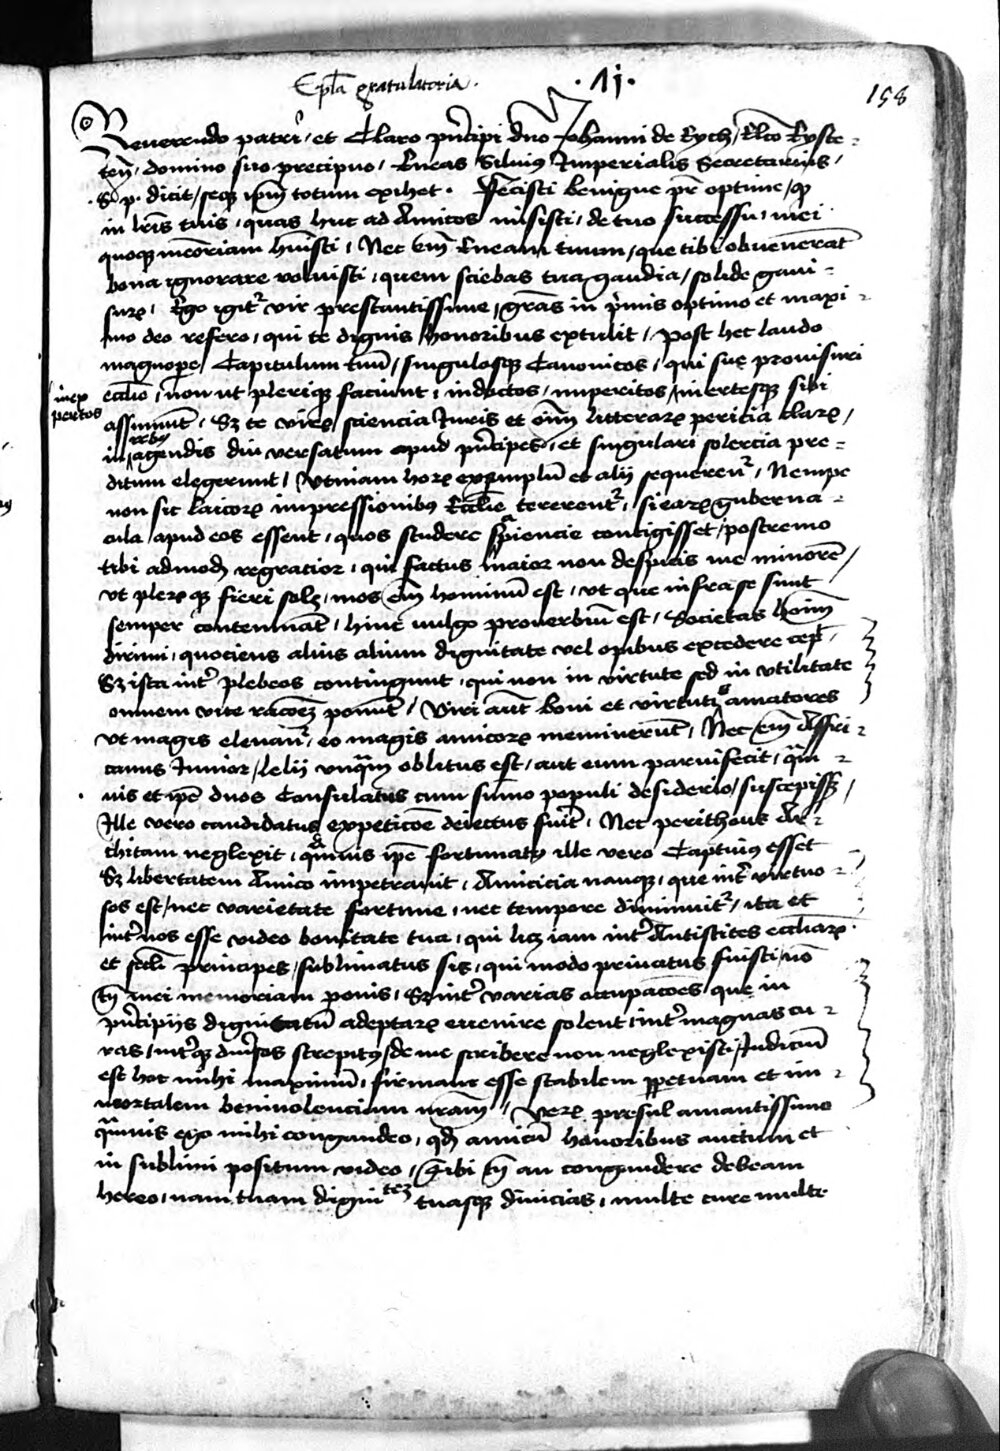 Epla gratulatoria.
.11.
158
Reuerendo patri, et Claro pncipi dno Johanni de Eych, Elco Eyste-
teñ, domino suo precipuo, Eneas Siluius Imperialis Secretarius,
.S. p. dicit, seqz ipm totum exihet. Fecisti benigne pr optime, qz
in lris tuis, quas huc ad Amicos misisti, de tuo successu, mei
quoqz meoriam huisti, Nec em Eneam tuum, que tibi obuenerat
bona ignorare voluisti, quem sciebas tua gaudia, solide gaui-
surz, Ego igitr vir prestantissime, gras in pmis optimo et maxi-
mo deo refero, qui te dignis honoribus extulit, Post hec laudo
magnope, Capitulum tuu, singulosqz Canonicos, qui sue prouisuri
ecclie, non ut pleriqz faciunt, indoctos, imperitos, inertesqz sibi
inex
pertos
assumut, Sz te virz, sciencia Juris et oim litterarz pericia clarz,
in rebus agendis diu versatum apud pncipes, et singulari solercia pre=
ditum elegerunt, Vtinam horz exemplu et alij sequerenr, Nempe
non sic laicorz impressionibus Ecclie tererentr, si earz guberna-
cula apud eos essent, quos studere sapiencie contigisset, postremo
tibi admodz regratior, qui factus maior non despicis me minore,
vt plerzqz fieri solz, mos em hominu est, vt que infra se sunt
semper contemnat, hinc uulgo prouerbiu est, Societas hoim
dirimi, quociens alius alium dignitate vel opibus excedere cepit,
Sz ista intr plebeos contingunt, qui non in virtute sed in vtilitate
omnem vite racoez ponut, Viri aut boni et virtutis amatores
vt magis eleuanr, eo magis amicorz meminerut, Nec em Affri-
canus Junior, Lelij vnqm oblitus est, aut eum paruifecit, qm-
uis et ipe duos Consulatus cum sumo populi desiderio, suscepissz,
Ille vero candidatus expeticoe deiectus fuit, Nec perithous Ar-
chitam neglexit, qmuis ipe fortunatus ille vero Captiuus esset
Sz libertatem Amico impetrauit, Amicicia nanqz, que intr virtuo-
sos est, nec varietate fortune, nec tempore diminuitr, ita et
intr nos esse video bonitate tua, qui licz iam intr Antistites eccliarz
et scli principes, sublimatus sis, qui modo priuatus fuisti, no
tn mei memoriam ponis, Sz intr varias occupacoes, que in
pncipijs dignitatu adeptarz euenire solent, intr magnas cu-
ras, intrqz diusos strepitus, de me scribere non neglexisti, Judiciu
est hoc mihi maximu, firmam esse stabilem ppetuam et im-
mortalem beniuolenciam nram, Verz presul amantissime
qmuis ego mihi congaudeo, qdz amicu honoribus auctum et
in sublimi positum video, Tibi tn an congaudere debeam
hereo, nam tuam dignitatez tuasqz diuicias, multe cure multe